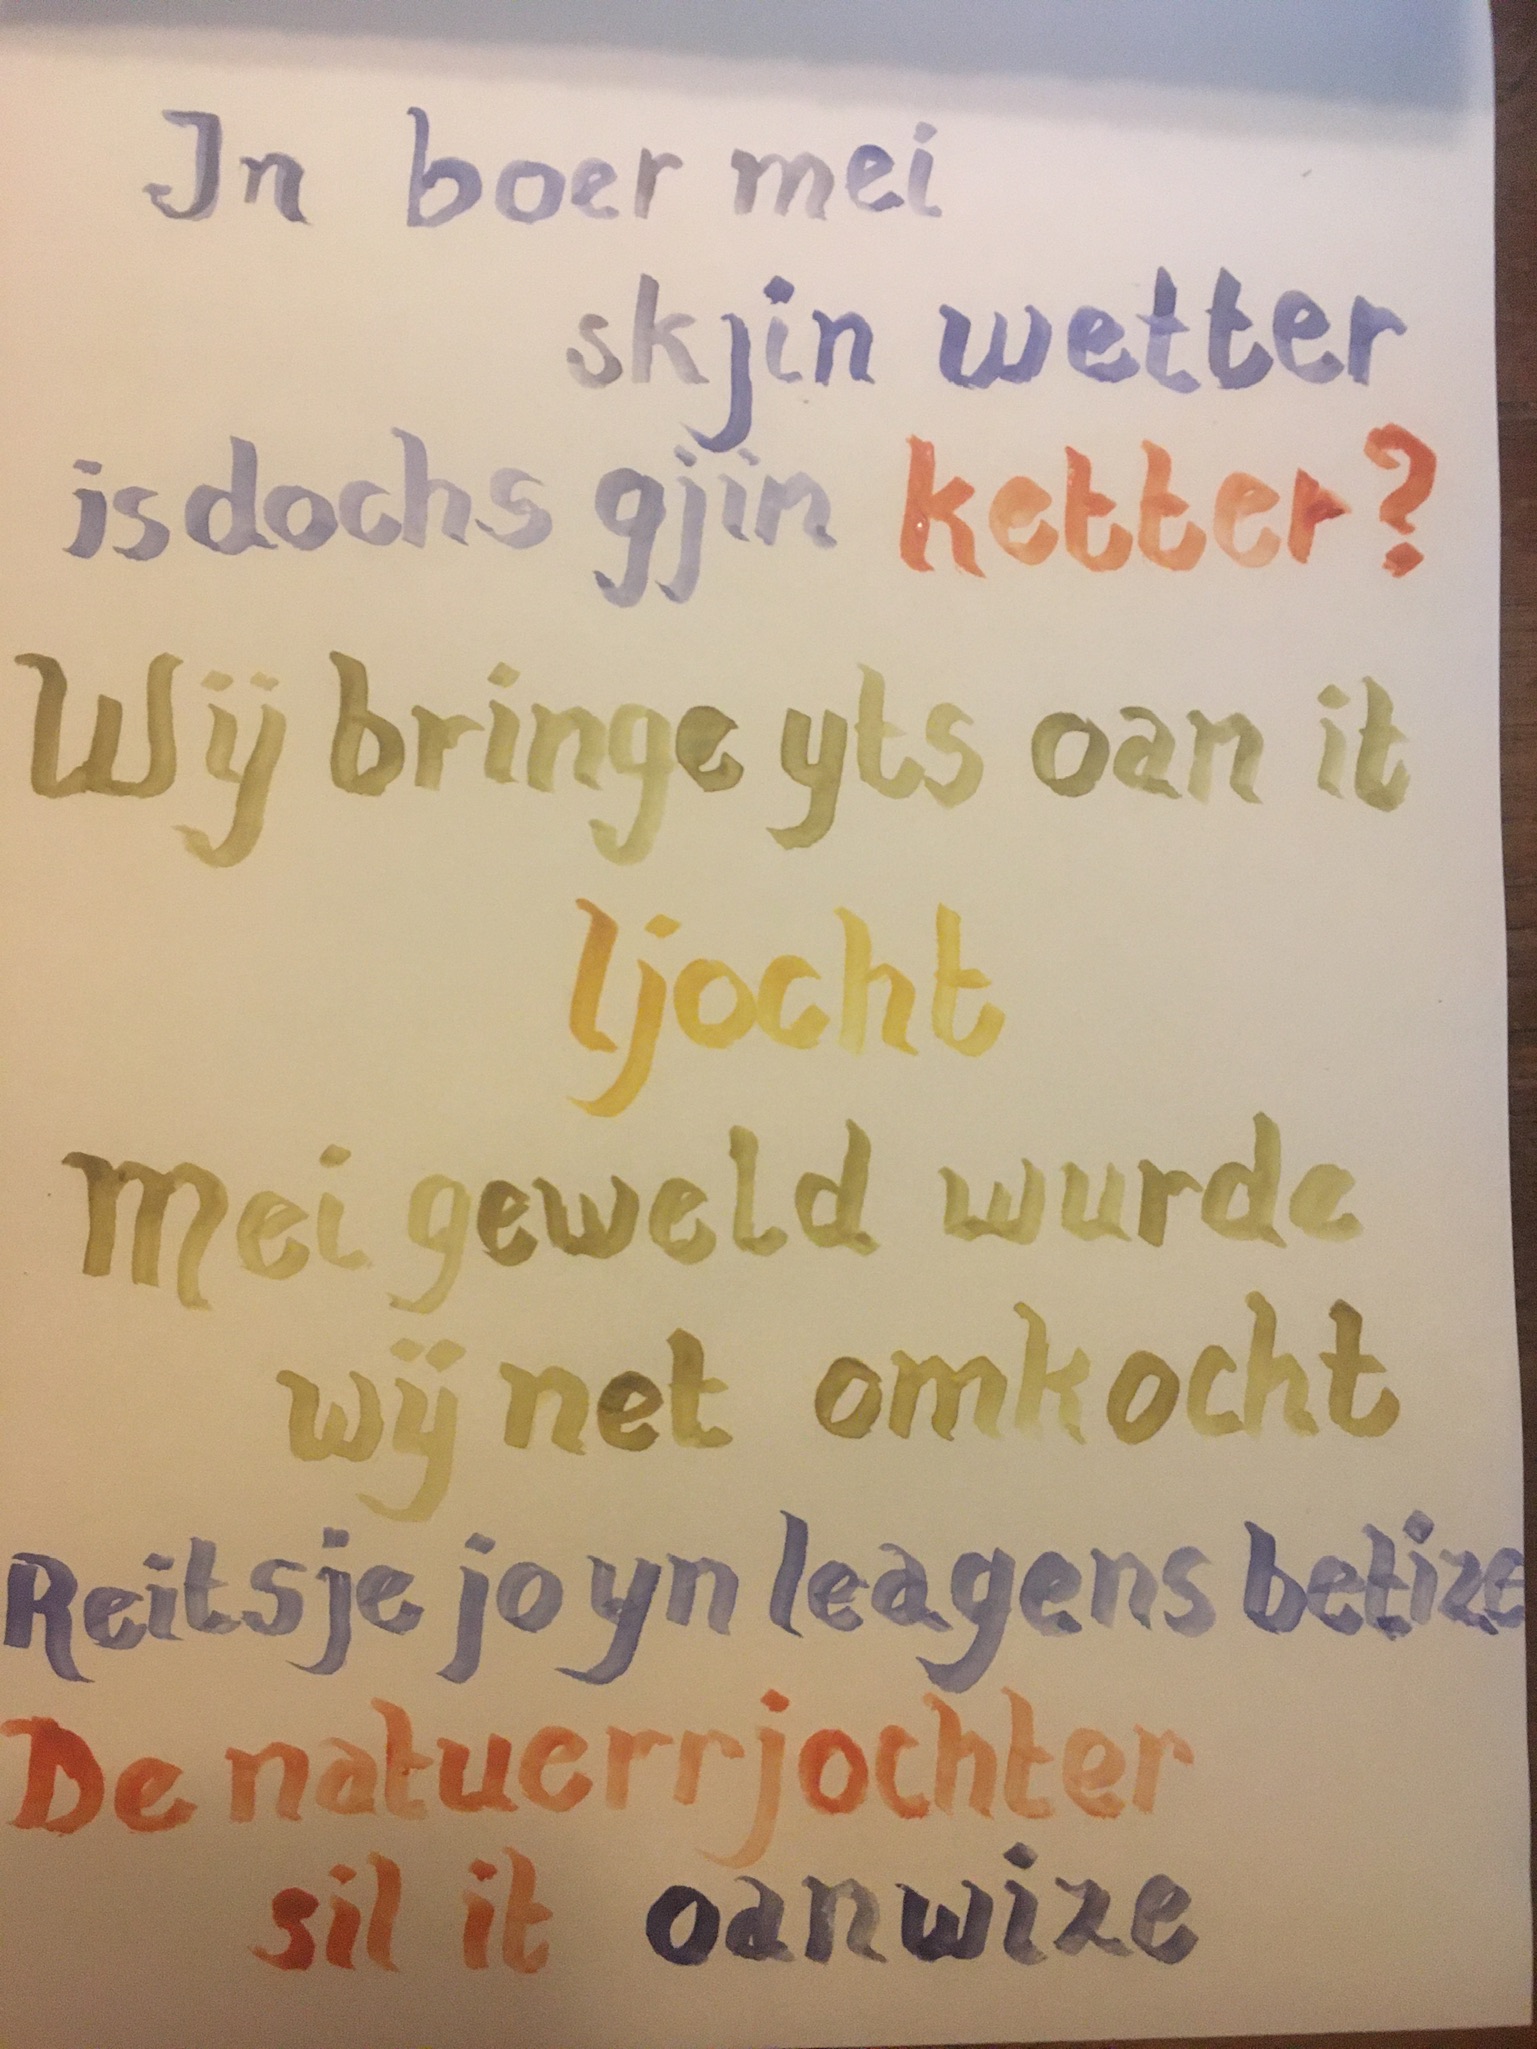 In boer mei
skjin wetter
is dochs gjin ketter?
Wij bringe yts oan it
ljocht
Mei geweld wurde
wij net omkocht
Reitsje jo yn leagens betize
De natuerrjochter
sil it oanwize